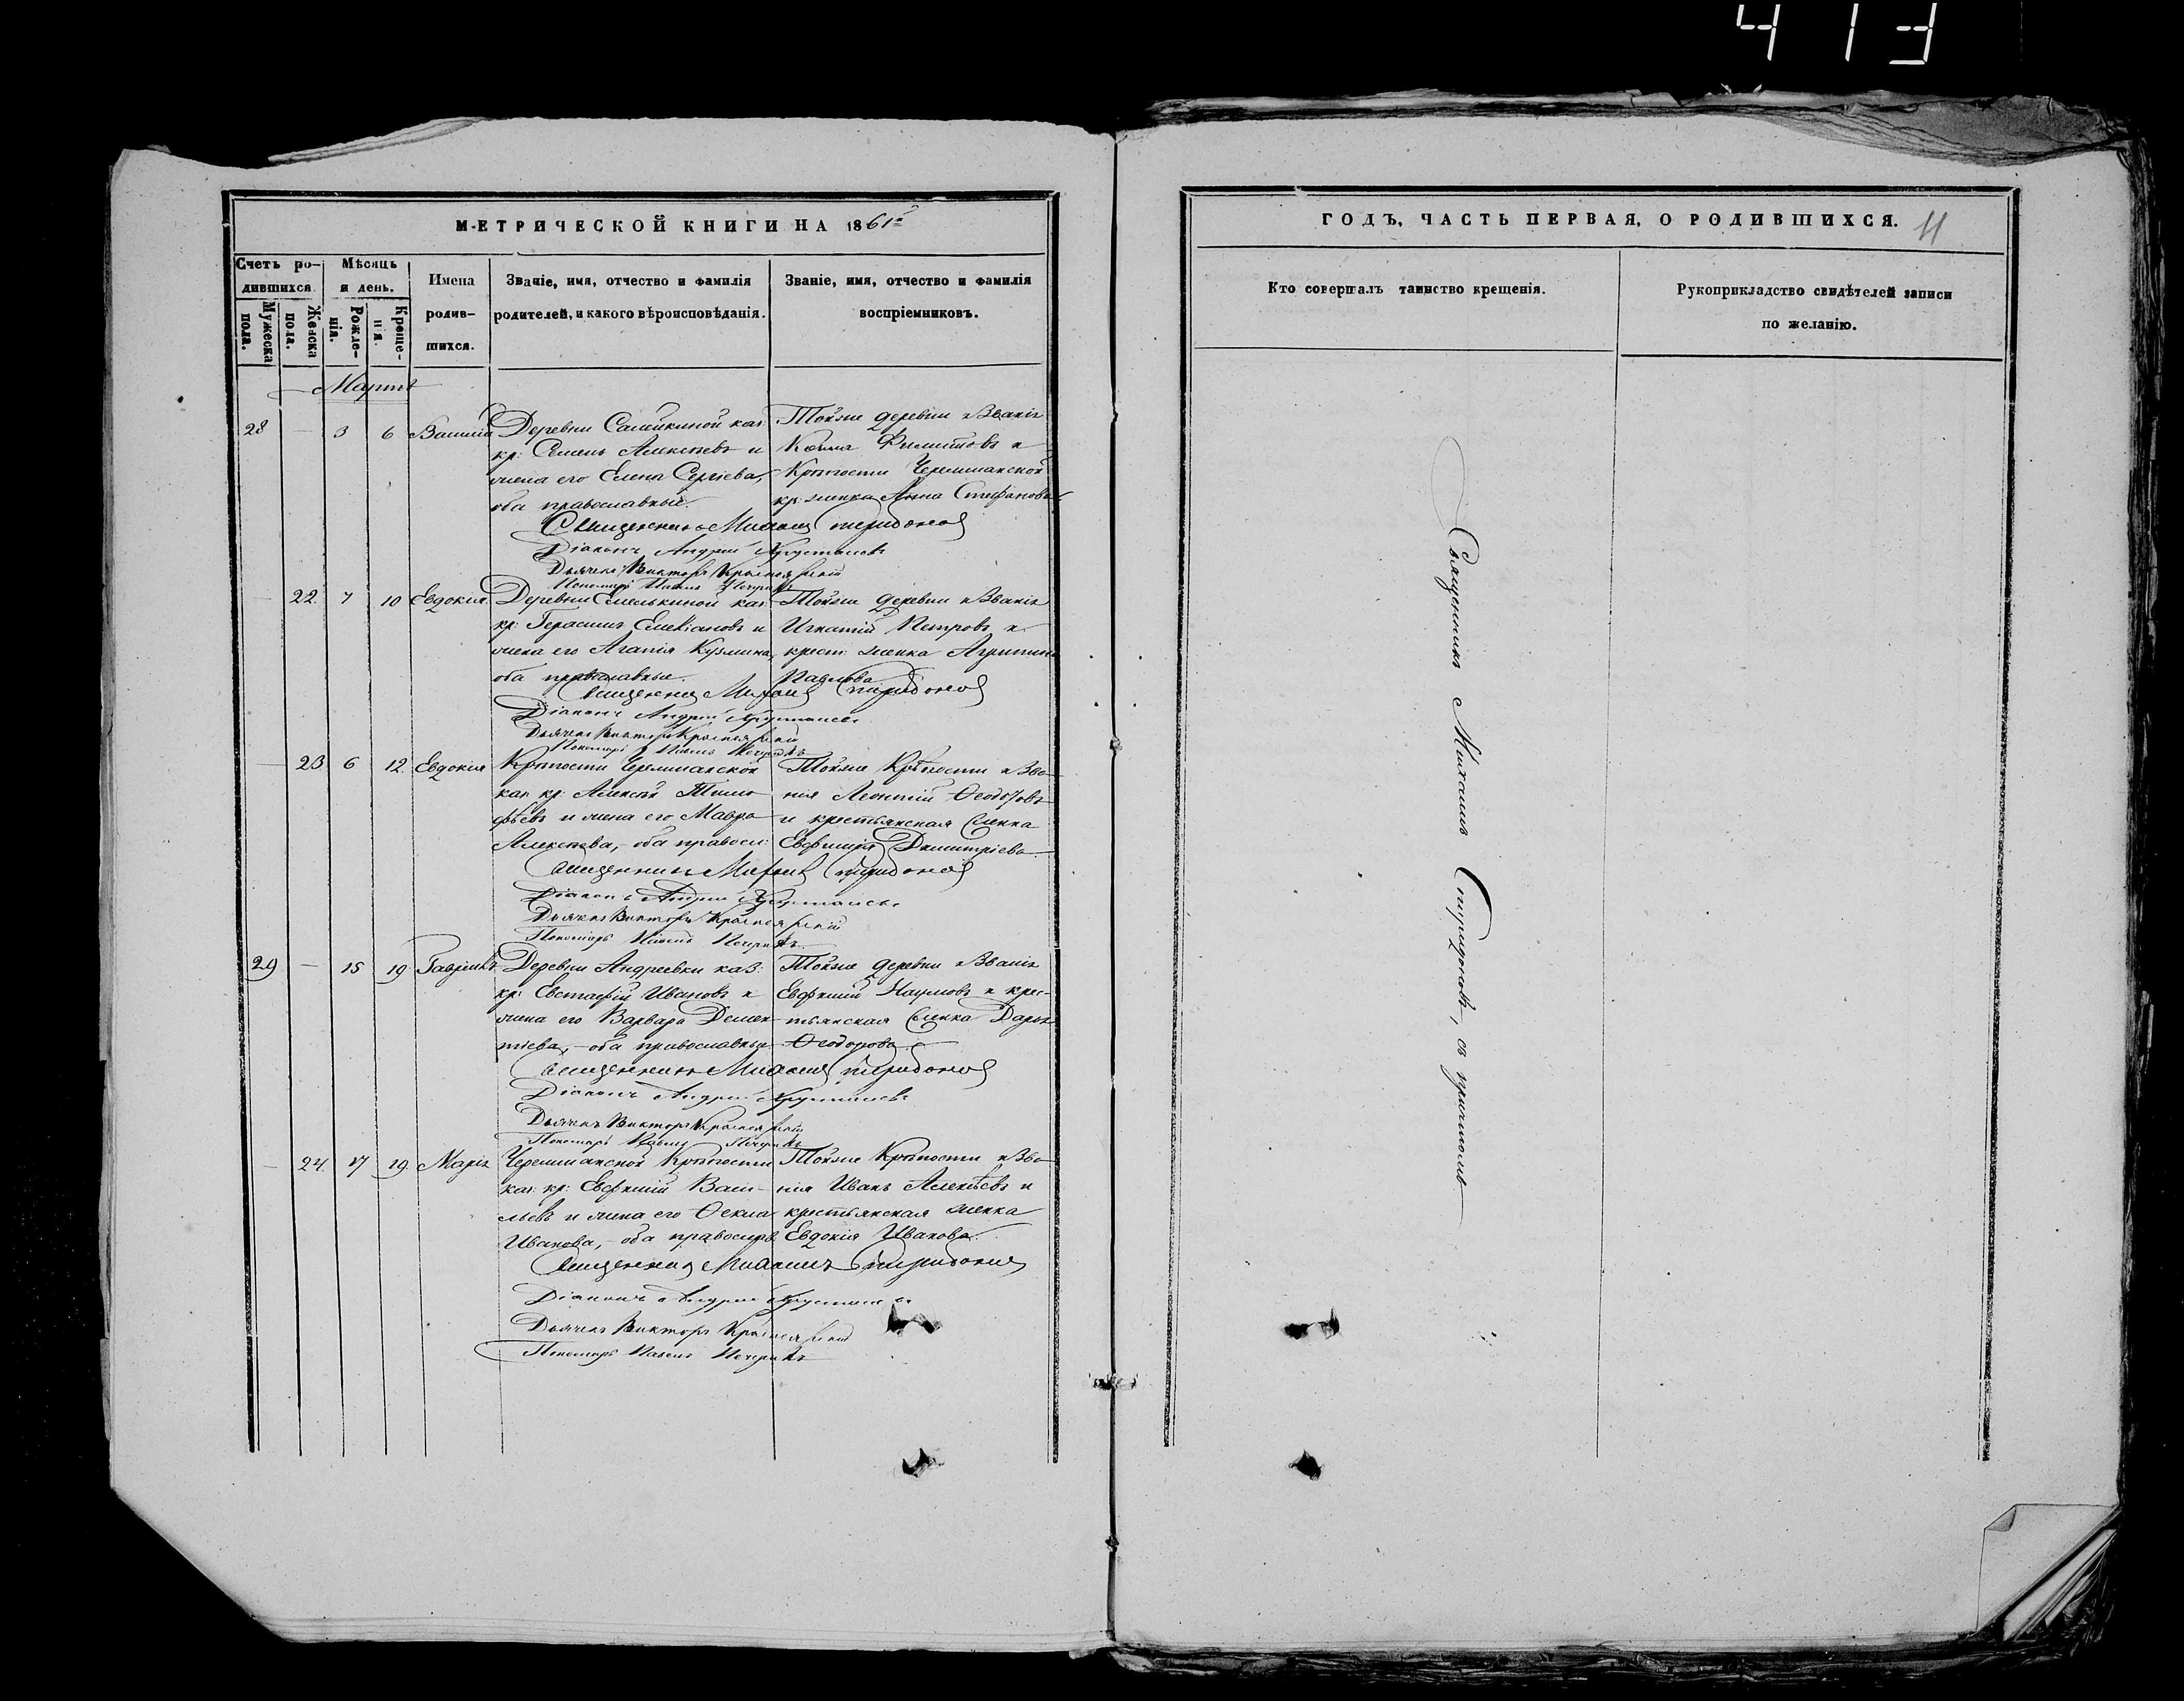 413
МЕТРИЧЕСКОЙ КНИГИ НА 1861й
Счетъ родившихся.
Мѣсяцъ и день.
Имена родившихся.
Званіе, имя, отчество и фамилія
родителей, и какого вѣроисповѣданія.
Званіе, имя, отчество и фамилія
воспріемниковъ.
Мужеска пола.
Женска пола.
Рожденія.
Крещенія.
Мартъ
28 — 3 6 Василій
Деревни Самйкиной каз:
кр: Семенъ Алексѣевъ и
жена его Елена Сергіева,
оба православные.
Тойже деревни и званія
Козма Филиповъ и
Крѣпости Черемшанской
кр: женка Анна Стефанова.
Священникъ Михаилъ Спиридоновъ
Діаконъ Андрей Хрусталевъ
Дьячекъ Викторъ Красноярскій
Пономарь Павелъ
— 22. 7 10 Евдокія.
Деревни Емелькиной каз:
кр: Герасимъ Емеліановъ и
жена его Агапія Кузмина,
оба православные.
Тойже деревни и званія
Игнатій Петровъ и
крест: женка Агрипина
Павлова
Священникъ Михаилъ Спиридоновъ
Діаконъ Андрей Хрусталевъ
Дьячекъ Викторъ Красноярскій
Пономарь Павелъ
— 23 6 12. Евдокія
Крѣпости Черемшанской
каз: кр: Алексѣй Тимо
фѣевъ и жена его Мавра
Алексѣева, оба правосл:
Тойже Крѣпости и Зва
нія Леонтій Ѳеодоровъ
и крестьянская женка
Евфимія Димитріева.
Священникъ Михаилъ Спиридоновъ
Діаконъ Андрей Хрусталевъ
Дьячекъ Викторъ Красноярскій
Пономарь Павелъ
29 — 15 19 Гавріилъ.
Деревни Андреевки каз:
кр: Евстафій Ивановъ и
жена его Варвара Демен
тіева, — оба православные
Тойже деревни и званія
Евфимій Наумовъ и крес-
тьянская женка Дарья
Ѳеодорова.
Священникъ Михаилъ Спиридоновъ
Діаконъ Андрей Хрусталевъ
Дьячекъ Викторъ Красноярскій
Пономарь Павелъ
— 24. 17 19 Марія
Черемшанской Крѣпости
каз: кр: Евфимій Васи-
льевъ и жена его Ѳекла
Иванова, — оба правосл:
Тойже Крѣпости и Зва
нія Иванъ Алексѣевъ и
крестьянская женка
Евдокія Иванова.
Священникъ Михаилъ Спиридоновъ
Діаконъ Андрей Хрусталевъ
Дьячекъ Викторъ Красноярскій
Пономарь Павелъ
ГОДЪ, ЧАСТЬ ПЕРВАЯ, О РОДИВШИХСЯ. 11
Кто совершалъ таинство крещенія.
Рукоприкладство свидѣтелей записи
по желанію.
Священникъ Михаилъ Спиридоновъ, съ причтомъ